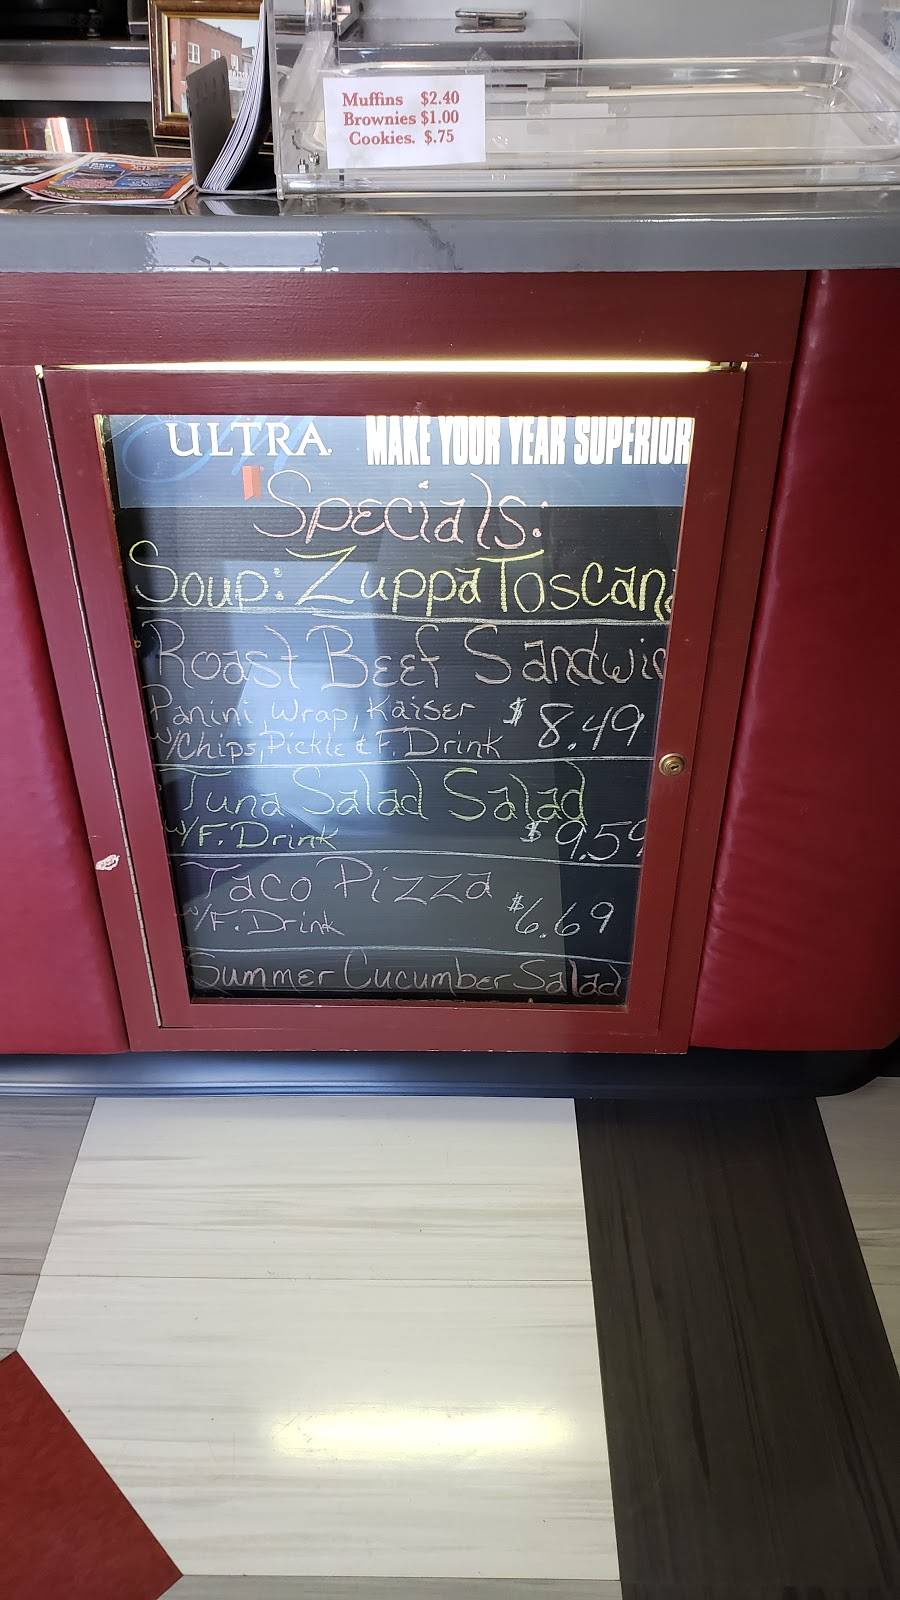 Muffins $2.40
Brownies $1.00
Cookies. $.75
ULTRA MAKE YOUR YEAR SUPERIOR
Specials:
Soup: Zuppa Toscana
Roast Beef Sandwic
Panini, Wrap, Kaiser $8.49
w/Chips, Pickle & F. Drink
Tuna Salad Salad
w/F. Drink $9.59
Taco Pizza
w/F. Drink $6.69
Summer Cucumber Salad